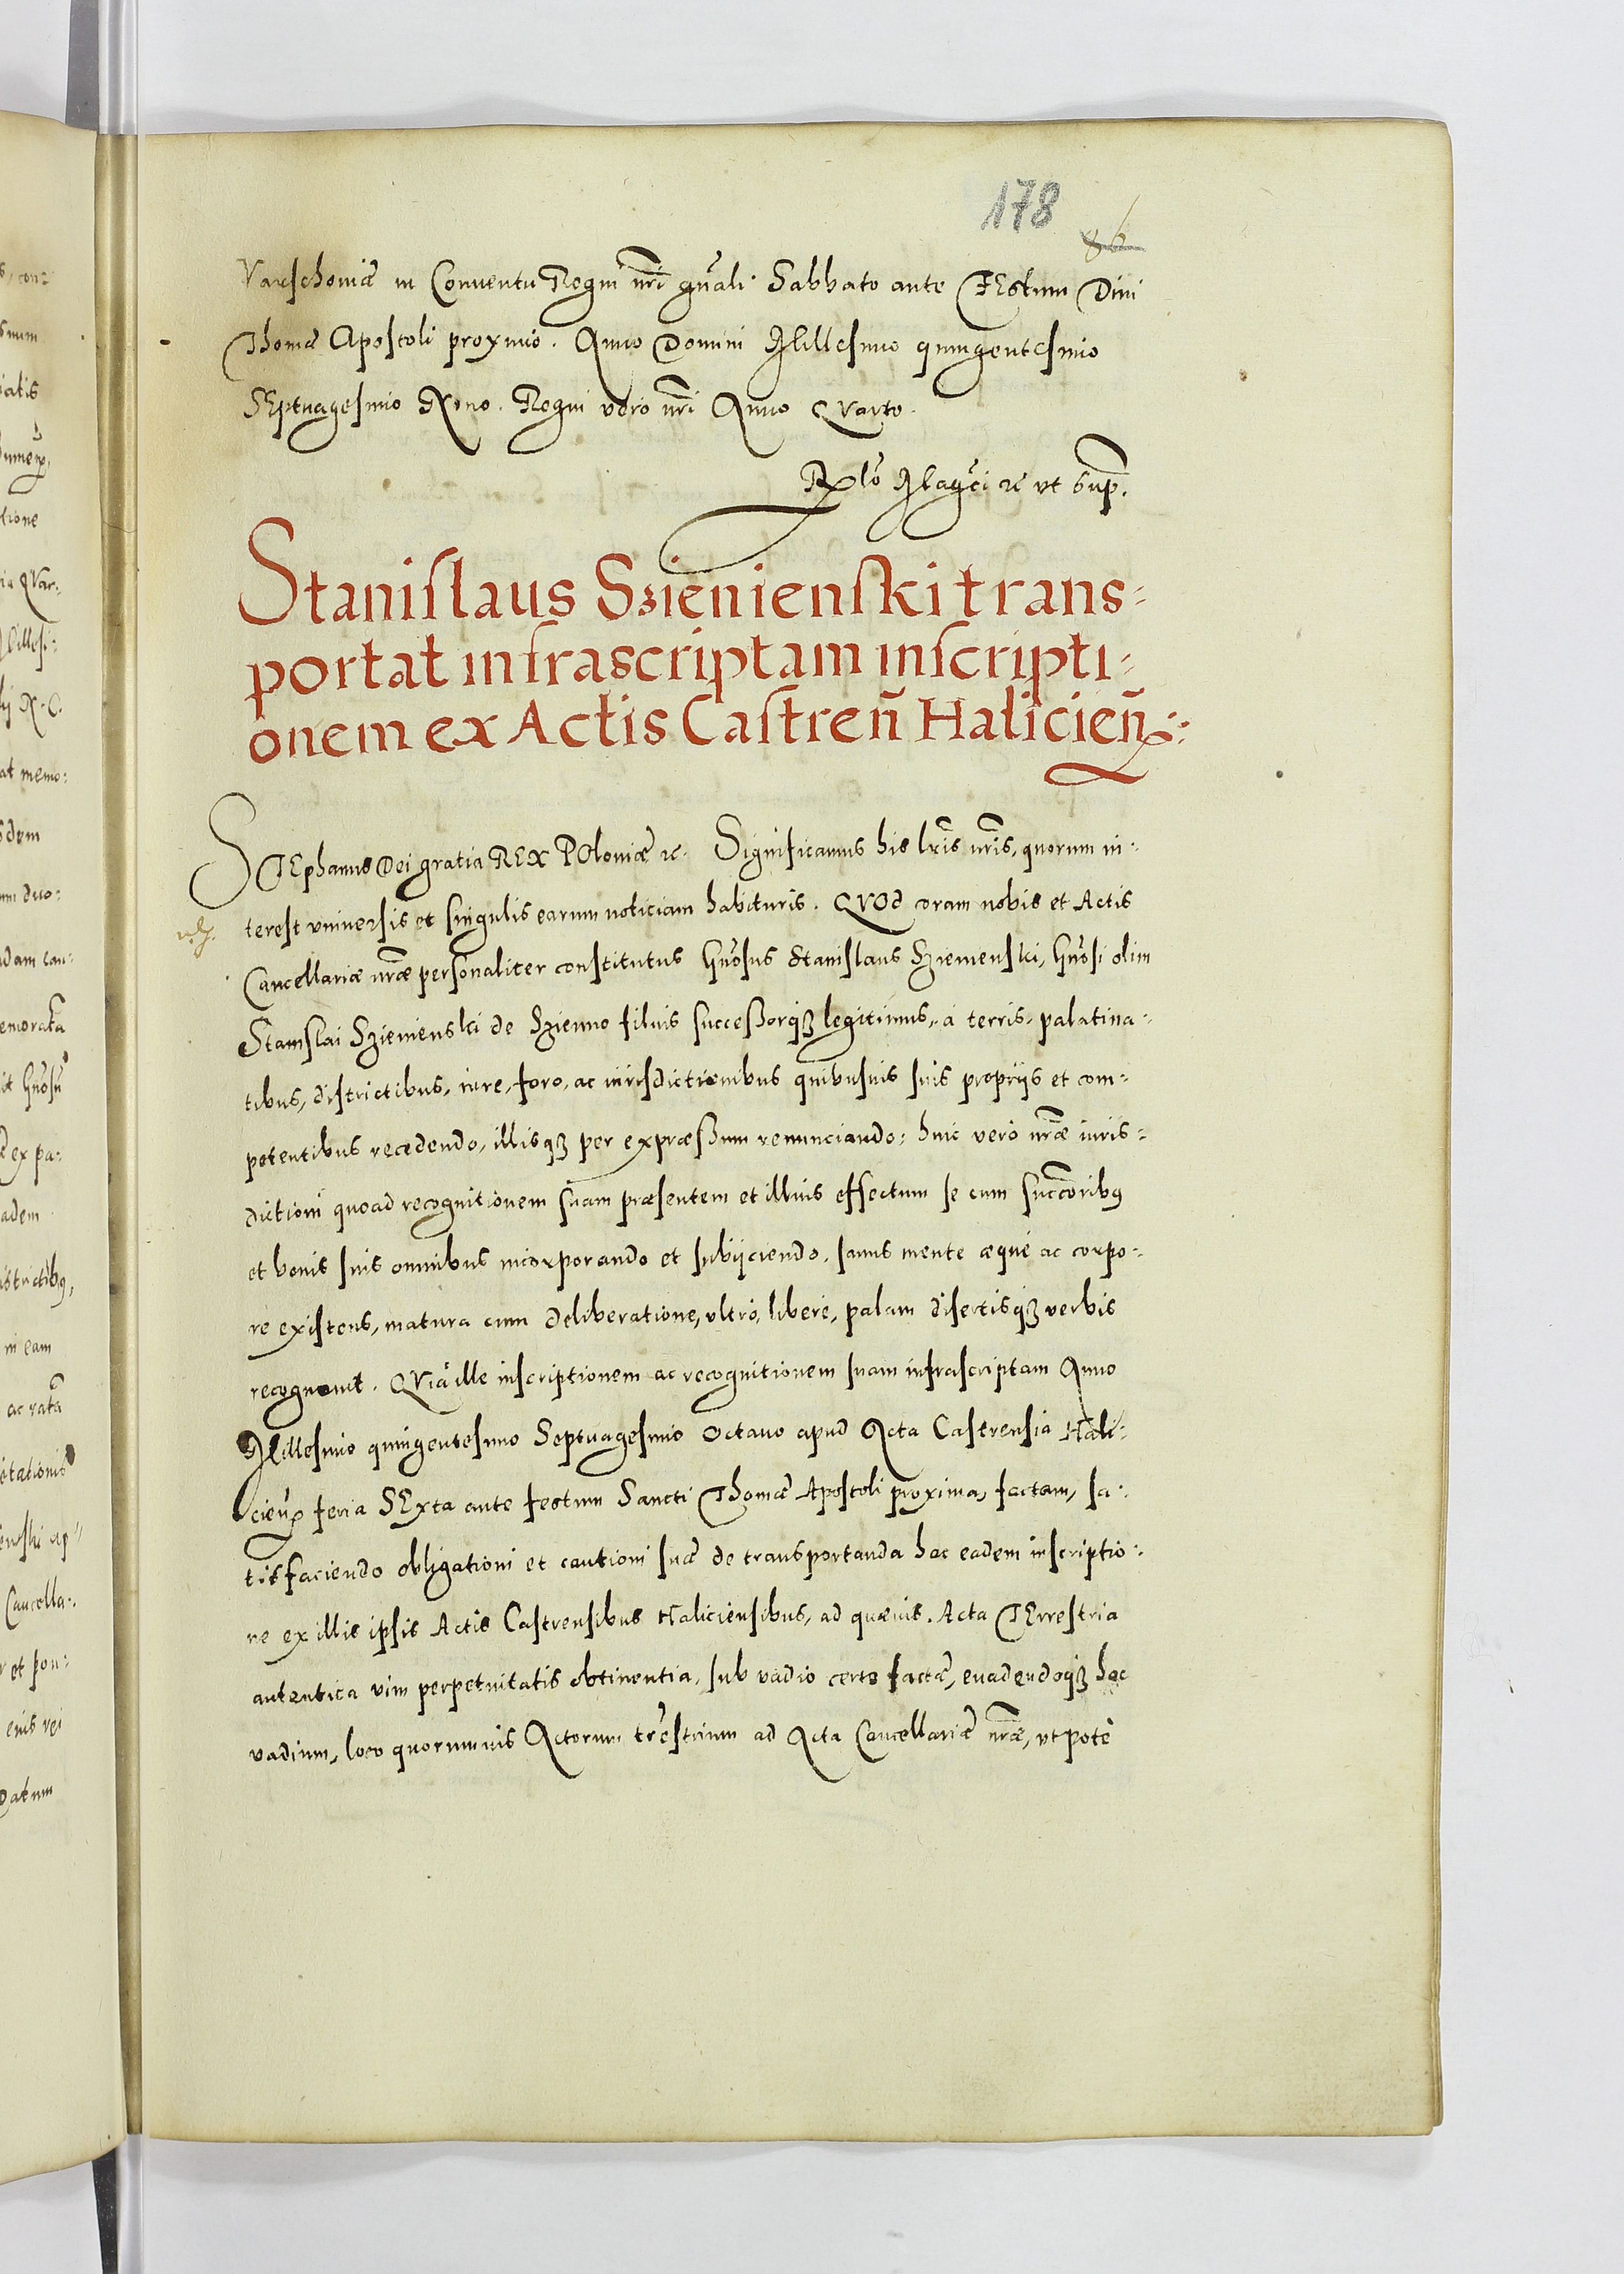 178
86
Varschoviæ in Conuentu Regni nr̃i gñali Sabbato ante FEstum Diui
Thomæ Apostoli proximo. Anno Domini Millesimo quingentesimo
SEptuagesimo Nono. Regni vero nr̃i Anno Quarto.
Rlõ Magci ꝛc vt sup.
Stanislaus Szienienski trans-
portat infrascriptam inscripti-
onem ex Actis Castren̄ Halicien̄
STEphanus Dei gratia REX POloniæ ꝛc. Significamus his lr̃is nr̃is, quorum in-
terest vniuersis et singulis earum noticiam habituris. QVOd coram nobis et Actis
Cancellariæ nr̃æ personaliter constitutus Gñosus Stanislaus Szienienski, Gñosi olim
Stanislai Szienienski de Szienno filius successorqꝫ legitimus, à terris, palatina-
tibus, districtibus, iure, foro, ac iurisdictionibus quibusuis suis proprijs et com-
petentibus recedendo, illisqꝫ per expræssum renunciando: huic verò nr̃æ iuris-
dictioni quoad recognitionem suam præsentem et illius effectum se cum succ̃oribꝰ
et bonis suis omnibus incorporando et subijciendo, sanus mente æquè ac corpo-
re existens, matura cum deliberatione, vltrò, liberè, palam disertisqꝫ verbis
recognouit. QVia ille inscriptionem ac recognitionem suam infrascriptam Anno
Millesimo quingentesimo Septuagesimo Octauo apud Acta Castrensia Hali-
cien̄ feria SExta ante festum Sancti Thomæ Apostoli proxima, factam, sa-
tisfaciendo obligationi et cautioni suæ de transportanda hac eadem inscriptio-
ne ex illis ipsis Actis Castrensibus Haliciensibus, ad quæuis Acta TErrestria
autentica vim perpetuitatis obtinentia, sub vadio certo factæ, euadendoqꝫ hoc
vadium, loco quorumuis Actorum tr̃estrium ad Acta Cancellariæ nr̃æ, vtpotè